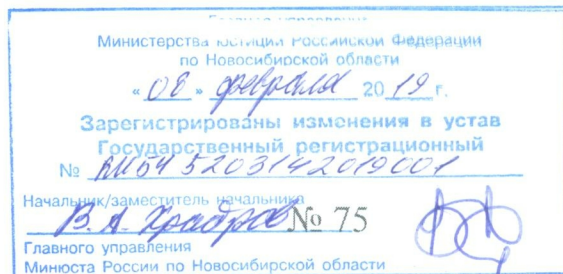 Главное управление
Министерства юстиции Российской Федерации
по Новосибирской области
« 08 » февраля 20 19 г.
Зарегистрированы изменения в устав
Государственный регистрационный
№ RU54 5203142019001
Начальник/заместитель начальника
№ 75
Главного управления
Минюста России по Новосибирской области